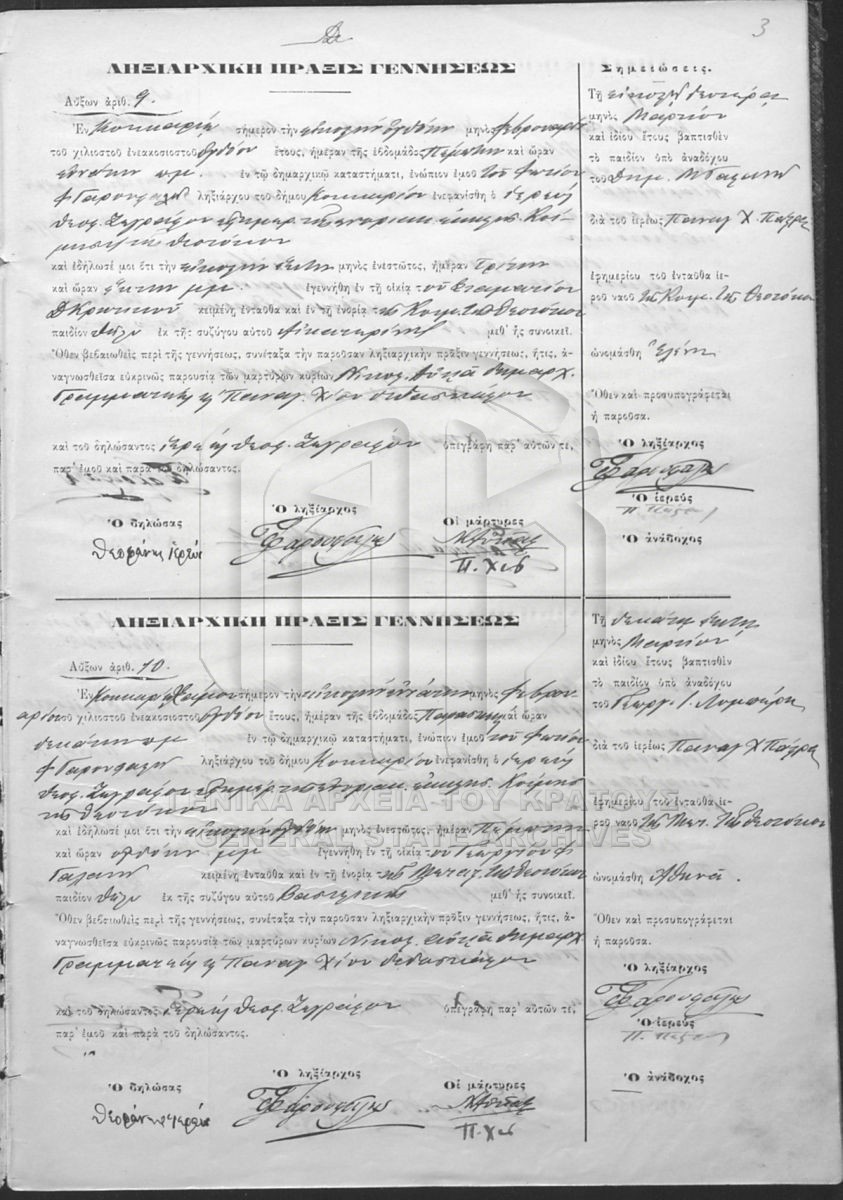 3
ΛΗΞΙΑΡΧΙΚΗ ΠΡΑΞΙΣ ΓΕΝΝΗΣΕΩΣ
Αὔξων ἀριθ. 9.
Ἐν Κοκκαρίῳ σήμερον τὴν εἰκοστὴν ὀγδόην μηνὸς Φεβρουαρίου
τοῦ χιλιοστοῦ ἐνεακοσιοστοῦ ὀγδόου ἔτους, ἡμέραν τῆς ἑβδομάδος Πέμπτην καὶ ὥραν
ἐνάτην πμ. ἐν τῷ δημαρχικῷ καταστήματι, ἐνώπιον ἐμοῦ τοῦ Φωτίου
Φ Γαρουφαλῆ ληξιάρχου τοῦ δήμου Κοκκαρίου ἐνεφανίσθη ὁ ἱερεὺς
Θεοφ. Ζωγράφου ἐφημερ. τῆς ἐνοριακ. ἐκκλησ. Κοι-
μήσεως τῆς Θεοτόκου
καὶ ἐδήλωσέ μοι ὅτι τὴν εἰκοστὴν ἕκτην μηνὸς ἐνεστῶτος, ἡμέραν Τρίτην
καὶ ὥραν ἕκτην μμ. ἐγεννήθη ἐν τῇ οἰκίᾳ τοῦ Σταματίου
Δ Κρητικοῦ κειμένῃ ἐνταῦθα καὶ ἐν τῇ ἐνορίᾳ τῆς Κοιμ. τῆς Θεοτόκου
παιδίον θῆλυ ἐκ τῆς συζύγου αὐτοῦ Αἰκατερίνης μεθ' ἧς συνοικεῖ.
Ὅθεν βεβαιωθεὶς περὶ τῆς γεννήσεως, συνέταξα τὴν παροῦσαν ληξιαρχικὴν πρᾶξιν γεννήσεως, ἥτις, ἀ-
ναγνωσθεῖσα εὐκρινῶς παρουσίᾳ τῶν μαρτύρων κυρίων Νικολ. δημαρχ.
Γραμματέως κ Παναγ. Χίου διδασκάλου
καὶ τοῦ δηλώσαντος ἱερέως Θεοφ. Ζωγράφου ὑπεγράφη παρ' αὐτῶν τε,
παρ' ἐμοῦ καὶ παρὰ τοῦ δηλώσαντος.
Ὁ δηλώσας Ὁ ληξίαρχος Οἱ μάρτυρες
Θεοφάνης ἱερεὺς Φ Γαρουφαλῆς
Π. Χίου
Σημειώσεις.
Τῇ εἰκοστῇ δευτέρᾳ
μηνὸς Μαρτίου
καὶ ἰδίου ἔτους βαπτισθὲν
τὸ παιδίον ὑπὸ ἀναδόχου
τοῦ Δημ.
διὰ τοῦ ἱερέως Παναγ. Χ.
ἐφημερίου τοῦ ἐνταῦθα ἱε-
ροῦ ναοῦ τῆς Κοιμ. τῆς Θεοτόκου
ὠνομάσθη Ἑλένη
Ὅθεν καὶ προσυπογράφεται
ἡ παροῦσα.
Ὁ ληξίαρχος
Φ Γαρουφαλῆς
Ὁ ἱερεὺς
Ὁ ἀνάδοχος
ΛΗΞΙΑΡΧΙΚΗ ΠΡΑΞΙΣ ΓΕΝΝΗΣΕΩΣ
Αὔξων ἀριθ. 10.
Ἐν Κοκκαρίῳ σήμερον τὴν εἰκοστὴν ἐνάτην μηνὸς Φεβρου-
αρίου τοῦ χιλιοστοῦ ἐνεακοσιοστοῦ ὀγδόου ἔτους, ἡμέραν τῆς ἑβδομάδος Παρασκευὴν καὶ ὥραν
δεκάτην πμ ἐν τῷ δημαρχικῷ καταστήματι, ἐνώπιον ἐμοῦ τοῦ Φωτίου
Φ Γαρουφαλῆ ληξιάρχου τοῦ δήμου Κοκκαρίου ἐνεφανίσθη ὁ ἱερεὺς
Θεοφ. Ζωγράφου ἐφημερ. τῆς ἐνοριακ. ἐκκλησ. Κοιμήσ.
τῆς Θεοτόκου
καὶ ἐδήλωσέ μοι ὅτι τὴν εἰκοστὴν ὀγδόην μηνὸς ἐνεστῶτος, ἡμέραν Πέμπτην
καὶ ὥραν ὀγδόην μμ ἐγεννήθη ἐν τῇ οἰκίᾳ τοῦ Γεωργίου Φ
κειμένῃ ἐνταῦθα καὶ ἐν τῇ ἐνορίᾳ τῆς τῆς Θεοτόκου
παιδίον θῆλυ ἐκ τῆς συζύγου αὐτοῦ Βασιλικῆς μεθ' ἧς συνοικεῖ.
Ὅθεν βεβαιωθεὶς περὶ τῆς γεννήσεως, συνέταξα τὴν παροῦσαν ληξιαρχικὴν πρᾶξιν γεννήσεως, ἥτις, ἀ-
ναγνωσθεῖσα εὐκρινῶς παρουσίᾳ τῶν μαρτύρων κυρίων Νικολ. δημαρχ.
Γραμματέως κ Παναγ. Χίου διδασκάλου
καὶ τοῦ δηλώσαντος ἱερέως Θεοφ. Ζωγράφου ὑπεγράφη παρ' αὐτῶν τε,
παρ' ἐμοῦ καὶ παρὰ τοῦ δηλώσαντος.
Ὁ δηλώσας Ὁ ληξίαρχος Οἱ μάρτυρες
Θεοφάνης ἱερεὺς Φ Γαρουφαλῆς
Π. Χίου
Τῇ δεκάτῃ ἕκτῃ
μηνὸς Μαρτίου
καὶ ἰδίου ἔτους βαπτισθὲν
τὸ παιδίον ὑπὸ ἀναδόχου
τοῦ Γεωργ. Ι.
διὰ τοῦ ἱερέως Παναγ. Χ
ἐφημερίου τοῦ ἐνταῦθα ἱε-
ροῦ ναοῦ τῆς τῆς Θεοτόκου
ὠνομάσθη Ἀθηνᾶ.
Ὅθεν καὶ προσυπογράφεται
ἡ παροῦσα.
Ὁ ληξίαρχος
Φ Γαρουφαλῆς
Ὁ ἱερεὺς
Ὁ ἀνάδοχος
ΓΕΝΙΚΑ ΑΡΧΕΙΑ ΤΟΥ ΚΡΑΤΟΥΣ
GENERAL STATE ARCHIVES